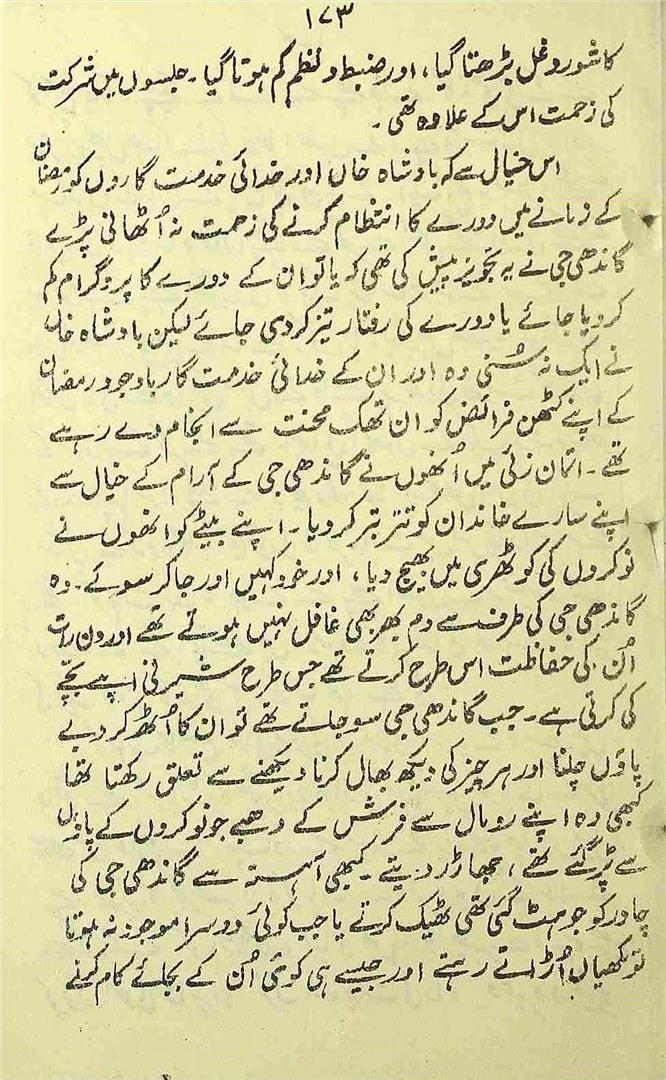 ۱۷۳
کا شور و غل بڑھتا گیا، اور ضبط و نظم کم ہوتا گیا۔ جلسوں میں شرکت
کی زحمت اس کے علاوہ تھی۔
اس خیال سے کہ بادشاہ خاں اور خدائی خدمت گاروں کو رمضان
کے زمانے میں دورے کا انتظام کرنے کی زحمت نہ اُٹھانی پڑے
گاندھی جی نے یہ تجویز پیش کی تھی کہ یا تو ان کے دورے کا پروگرام کم
کر دیا جائے یا دورے کی رفتار تیز کر دی جائے لیکن بادشاہ خاں
نے ایک نہ سُنی وہ اور ان کے خدائی خدمت گار باوجود رمضان
کے اپنے کٹھن فرائض کو ان تھک محنت سے انجام دے رہے
تھے۔ اتمان زئی میں اُنھوں نے گاندھی جی کے آرام کے خیال سے
اپنے سارے خاندان کو تتر بتر کر دیا۔ اپنے بیٹے کو انھوں نے
نوکروں کی کوٹھری میں بھیج دیا، اور خود کہیں اور جا کر سوئے۔ وہ
گاندھی جی کی طرف سے دم بھر بھی غافل نہیں ہوتے تھے اور دن رات
اُن کی حفاظت اس طرح کرتے تھے جس طرح شیرنی اپنے بچے
کی کرتی ہے۔ جب گاندھی جی سو جاتے تھے تو ان کا اُٹھ کر دبے
پاؤں چلنا اور ہر چیز کی دیکھ بھال کرنا دیکھنے سے تعلق رکھتا تھا
کبھی وہ اپنے رومال سے فرش کے دھبے جو نوکروں کے پاؤں
سے پڑ گئے تھے، جھاڑ دیتے۔ کبھی آہستہ سے گاندھی جی کی
چادر کو جو ہٹ گئی تھی ٹھیک کرتے یا جب کوئی دوسرا موجود نہ ہوتا
تو مکھیاں اُڑاتے رہتے اور جیسے ہی کوئی اُن کے بجائے کام کرنے